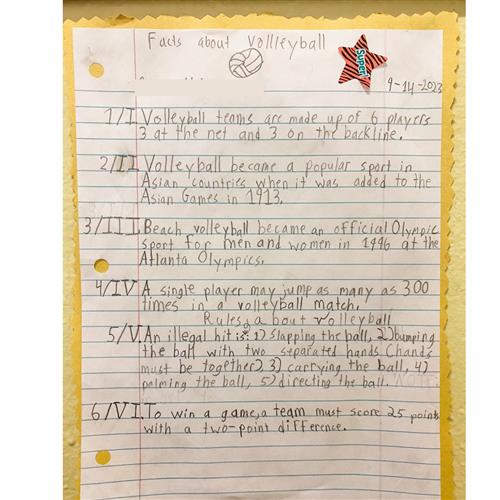 Facts about Volleyball
Super
9-14-2023
1/I Volleyball teams are made up of 6 players
3 at the net and 3 on the backline.
2/II Volleyball became a popular sport in
Asian countries when it was added to the
Asian Games in 1913.
3/III Beach volleyball became an official Olympic
sport for men and women in 1996 at the
Atlanta Olympics.
4/IV A single player may jump as many as 300
times in a volleyball match.
Rules about volleyball
5/V. An illegal hit is: 1) slapping the ball, 2) bumping
the ball with two separated hands (hands
must be together) 3) carrying the ball, 4)
palming the ball, 5) directing the ball.
6/VI. To win a game, a team must score 25 points
with a two-point difference.